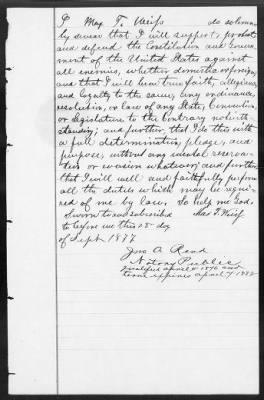 I Max T. Weiss do solemn-
ly swear that I will support, protect
and defend the Constitution and Govern-
ment of the United States against
all enemies, whether domestic or foreign,
and that I will bear true faith, allegiance
and loyalty to the same, any ordinance,
resolution, or law of any State, Convention,
or Legislature to the contrary notwith-
standing; and further, that I do this with
a full determination, pledge, and
purpose, without any mental reserva-
tion or evasion whatever; and further
that I will well and faithfully perform
all the duties which may be requi-
red of me by law. So help me God.
Sworn to and subscribed Max T. Weiss
to before me this 28 day
of Sept. 1877
Jno A. Read
Notary Public
Qualified April 4 1876 and
term expires April 4 1882